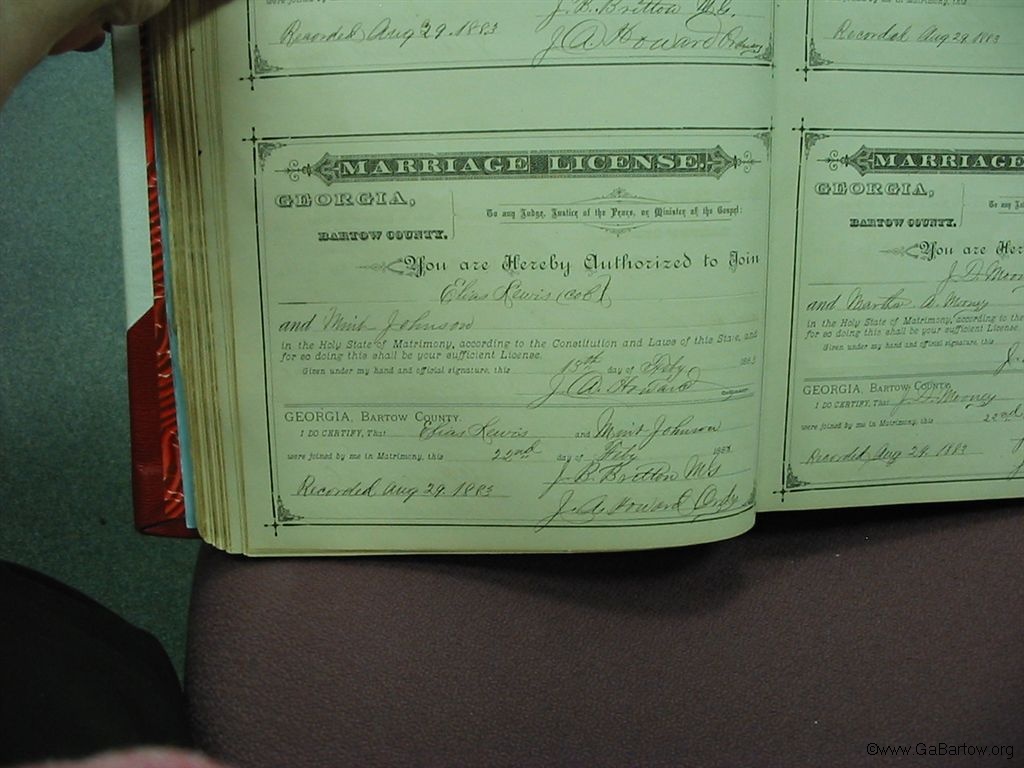 were joined by
J. B. Britton M.G.
Recorded Aug 29. 1883
J A Howard Ordinary
Recorded Aug 29. 1883
MARRIAGE LICENSE.
GEORGIA,
BARTOW COUNTY.
To any Judge, Justice of the Peace, or Minister of the Gospel:
You are Hereby Authorized to Join
Elias Lewis (col)
and Mint Johnson
in the Holy State of Matrimony, according to the Constitution and Laws of this State, and
for so doing this shall be your sufficient License.
Given under my hand and official signature, this day of Feby 1883
J. A. Howard
GEORGIA, BARTOW COUNTY.
I DO CERTIFY, That Elias Lewis and Mint Johnson
were joined by me in Matrimony, this 22nd day of Feby 1883
J. B. Britton
Recorded Aug 29. 1883
J. A. Howard Ordy
MARRIAGE
GEORGIA,
BARTOW COUNTY.
To any
You are Her
J. D. Mooney
and Martha A. Money
in the Holy State of Matrimony, according to the
for so doing this shall be your sufficient License.
Given under my hand and official signature, this
GEORGIA, BARTOW COUNTY.
I DO CERTIFY, That J. D. Mooney
were joined by me in Matrimony, this 22nd
Recorded Aug 29. 1883
©www.GaBartow.org